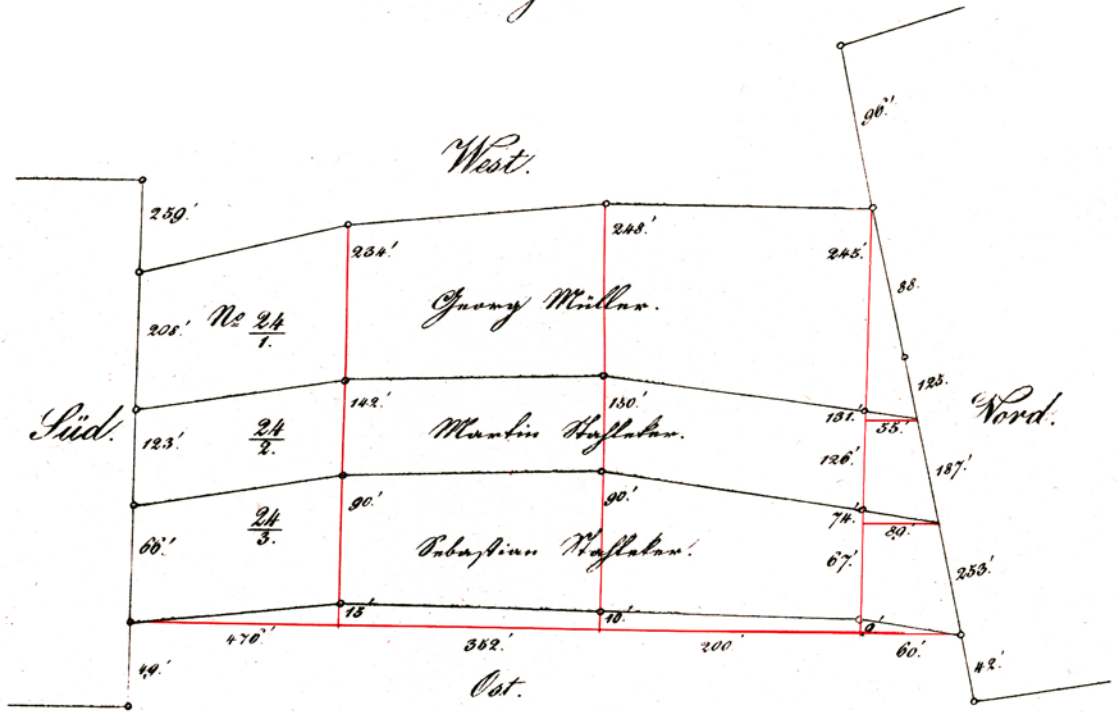 96.'
West.
259.'
234.'
248.'
245.'
88.
No 24/1.
Georg Müller.
208.'
125.
Süd.
Nord.
142.'
150.'
131.'
55.'
123.'
24/2.
Martin Stahleker.
126.'
187.'
90.'
90.'
74.'
89.'
66.'
24/3.
Sebastian Stahleker.
67.'
253.'
15.'
10.'
9.'
476.'
352.'
200.'
60.'
49.'
Ost.
42.'